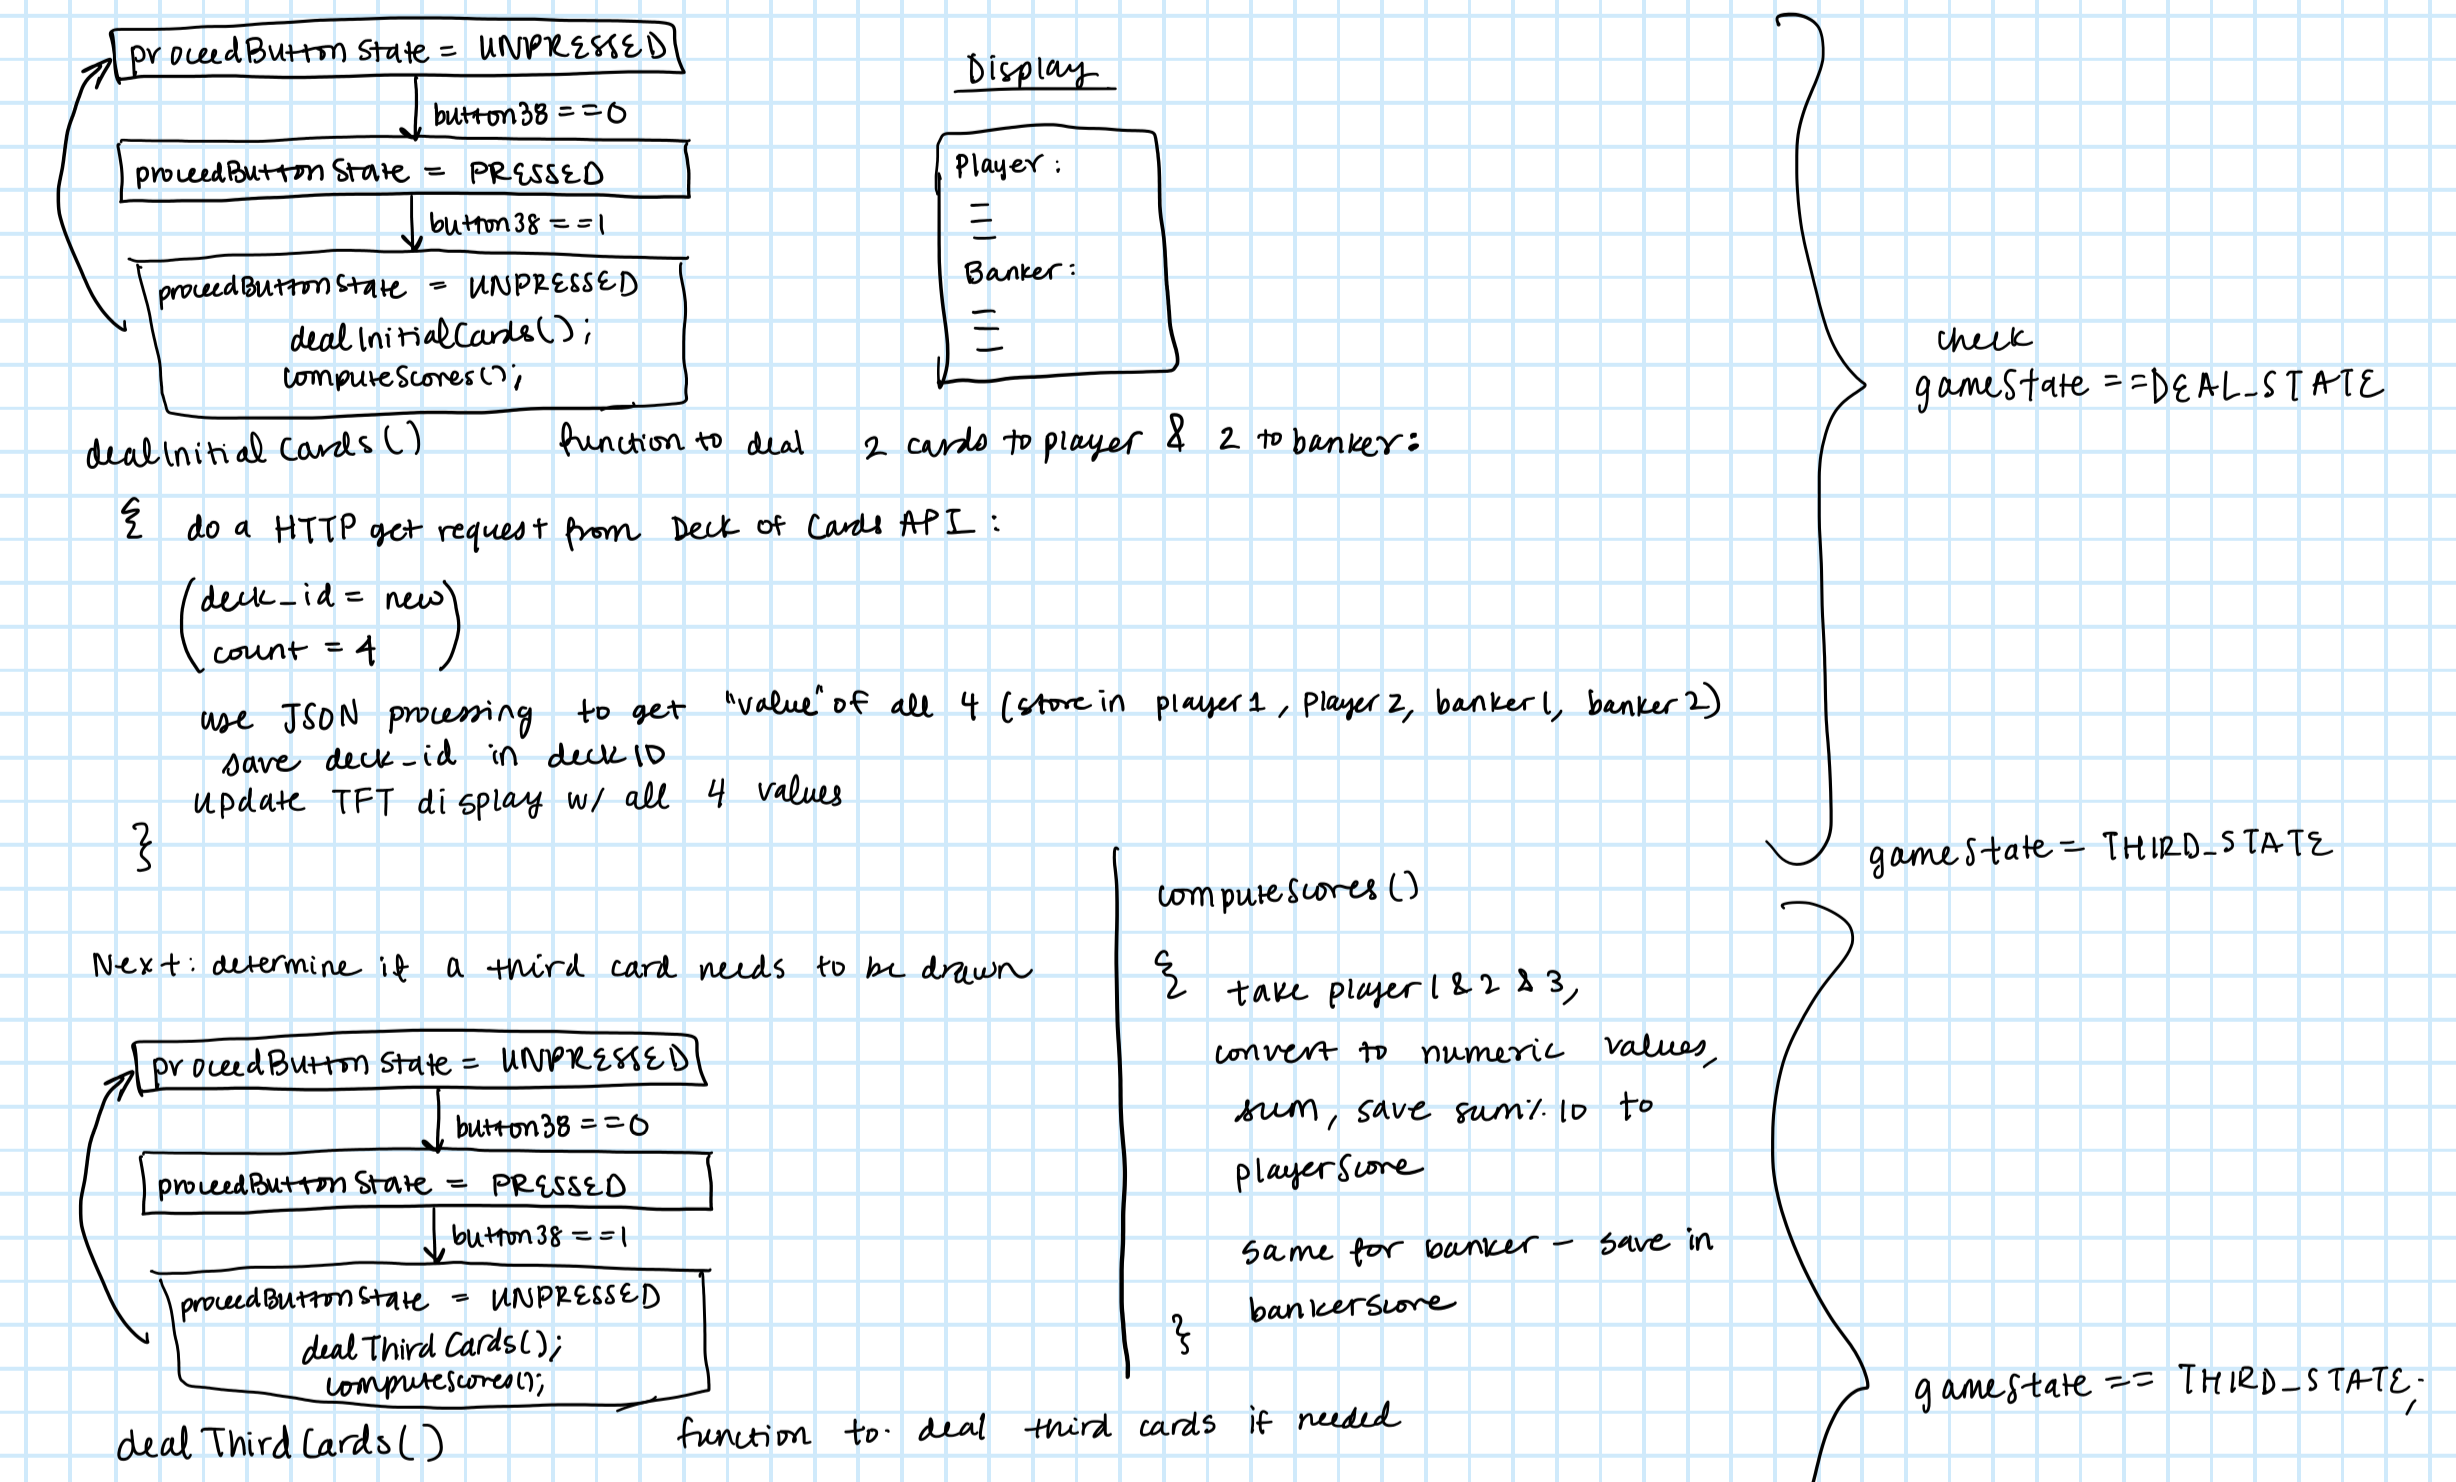 proceedButtonState = UNPRESSED
button38 == 0
proceedButtonState = PRESSED
button38 == 1
proceedButtonState = UNPRESSED
dealInitialCards();
computeScores();
Display
Player:
Banker:
check
gameState == DEAL_STATE
dealInitialCards() function to deal 2 cards to player & 2 to banker:
{ do a HTTP get request from Deck of Cards API:
(deck_id = new
count = 4)
use JSON processing to get "value" of all 4 (store in player1, Player2, banker1, banker2)
save deck_id in deckID
update TFT display w/ all 4 values
}
gameState = THIRD_STATE
computeScores()
{ take player 1 & 2 & 3,
convert to numeric values,
sum, save sum % 10 to
playerScore
same for banker - save in
bankerScore
}
Next: determine if a third card needs to be drawn
proceedButtonState = UNPRESSED
button38 == 0
proceedButtonState = PRESSED
button38 == 1
proceedButtonState = UNPRESSED
dealThirdCards();
computeScores();
gameState == THIRD_STATE;
dealThirdCards() function to deal third cards if needed